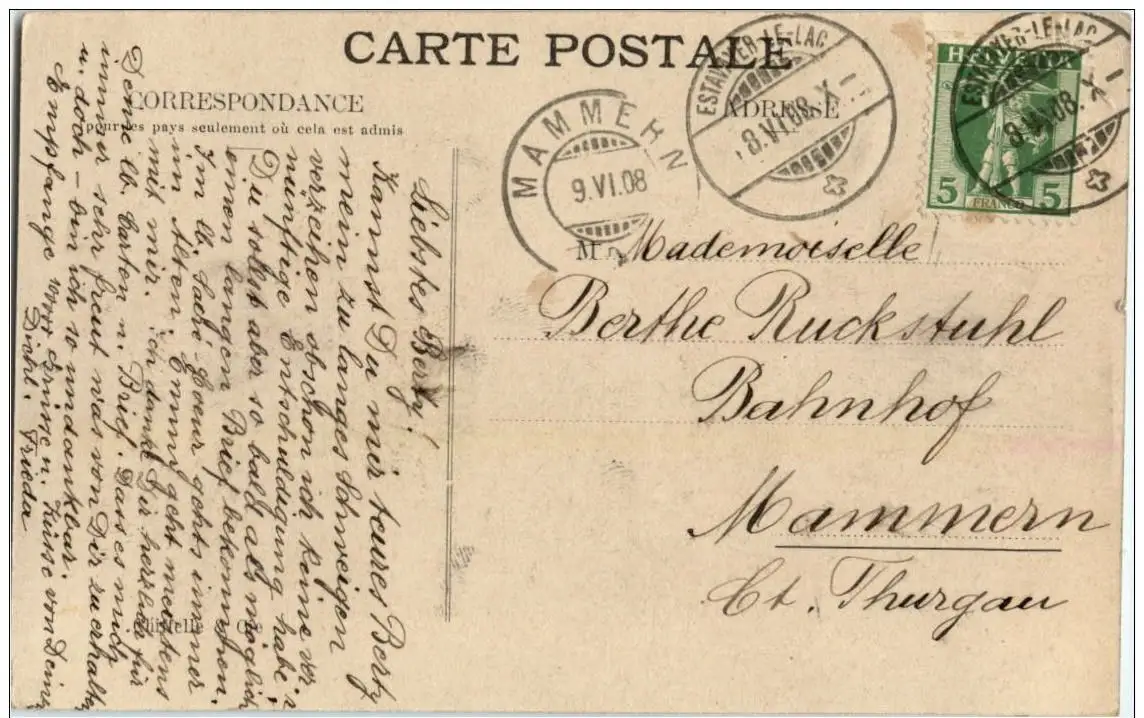 CARTE POSTALE
CORRESPONDANCE
pour les pays seulement où cela est admis
ADRESSE
MAMMERN
9.VI.08
ESTAVAYER-LE-LAC
8.VI.08.X-
ESTAVAYER-LE-LAC
8.VI.08.X-
HELVETIA
5 5
FRANCO
M Mademoiselle
Berthe Ruckstuhl
Bahnhof
Mammern
Ct. Thurgau
Liebstes Berty!
Kannst Du mir teures Berty
mein zu langes Schweigen
verzeihen obschon ich keine ver
nünftige Entschuldigung habe.
Du sollst aber so bald als möglich
einen langen Brief bekommen.
Im lb. Sacré Coeur gehts immer
im Alten. Emmy geht meistens
mit mir. Ich danke Dir herzlich für
Deine lb. Carten u. Brief. Dass es mich
immer sehr freut was von Dir zu erhalten
u. doch - bin ich so undankbar.
Empfange Grüsse u. Küsse von Deiner
Dichl. Frieda
& Cie